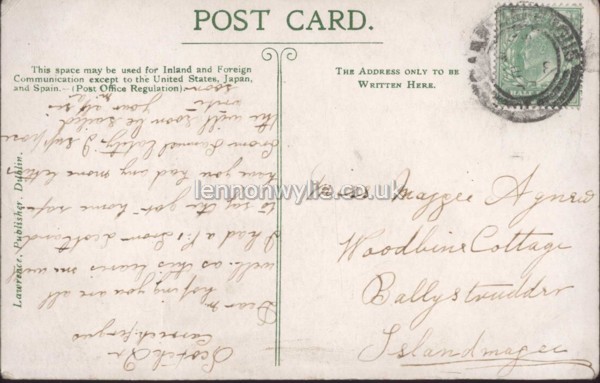 POST CARD.
This space may be used for Inland and Foreign
Communication except to the United States, Japan,
and Spain.—(Post Office Regulation).
THE ADDRESS ONLY TO BE
WRITTEN HERE.
Lawrence, Publisher, Dublin.
lennonwylie.co.uk
Miss Maggie Agnew
Woodbine Cottage
Ballystrudder
Islandmagee
Scotch Qr
Carrickfergus
Dear M
hoping you are all
well as this leaves me and
I had a from Scotland
to say she got home safe
have you had any more letters
from Samuel lately I suppose
she will soon be sailed
write
soon your